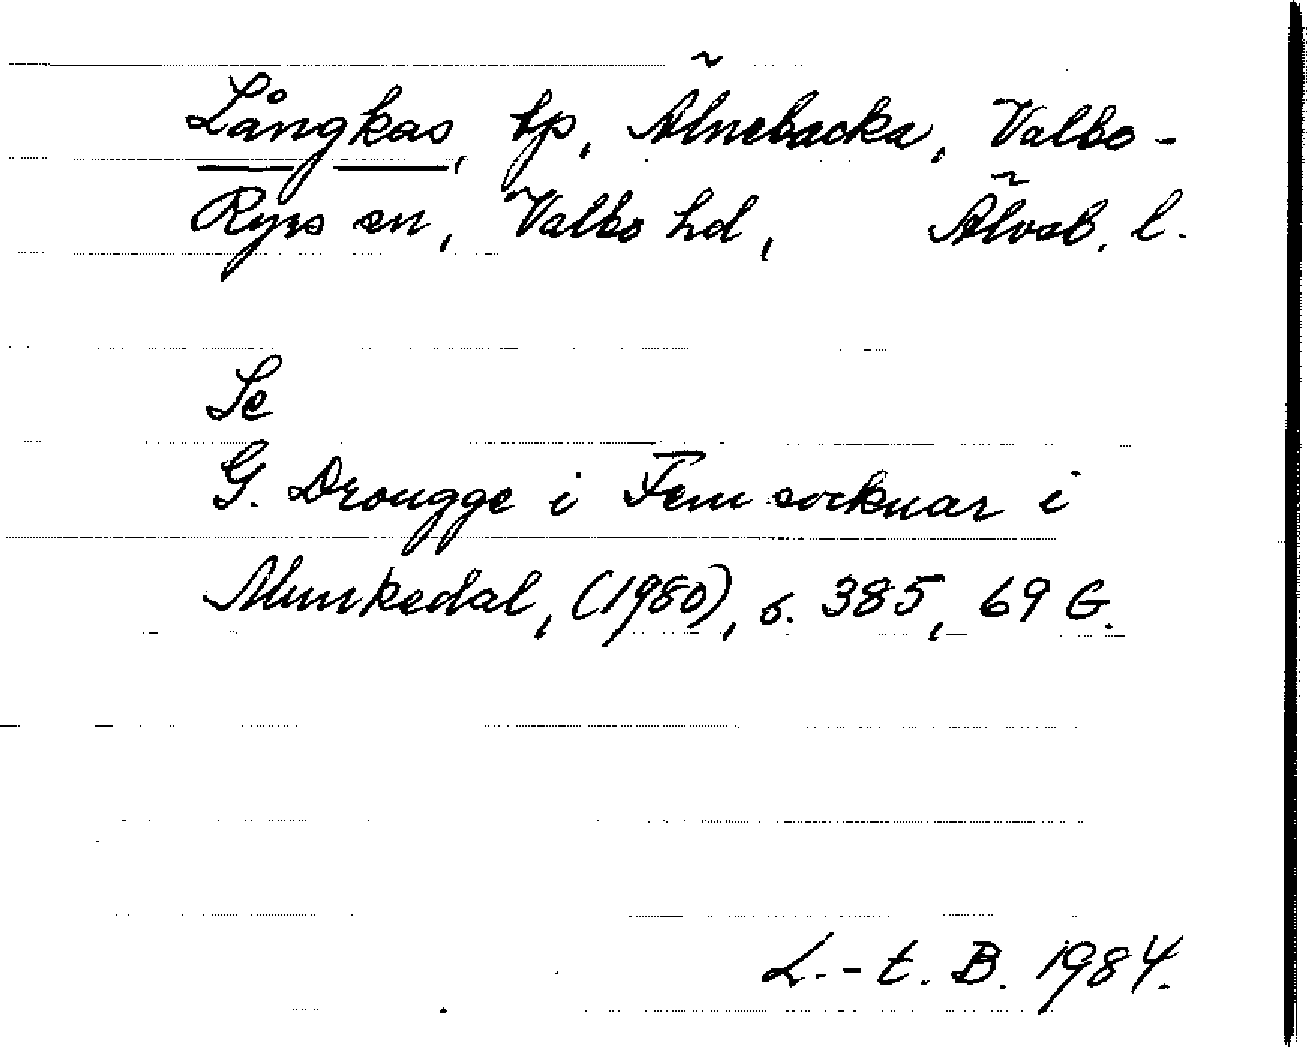 Långkas, tp, Älnebacka, Valbo-
Ryrs sn, Valbo hd, Älvsb. l.
Se
G. Drougge i Fem socknar i
Munkedal, (1980), s. 385, 69 G.
L.-t. B. 1984.